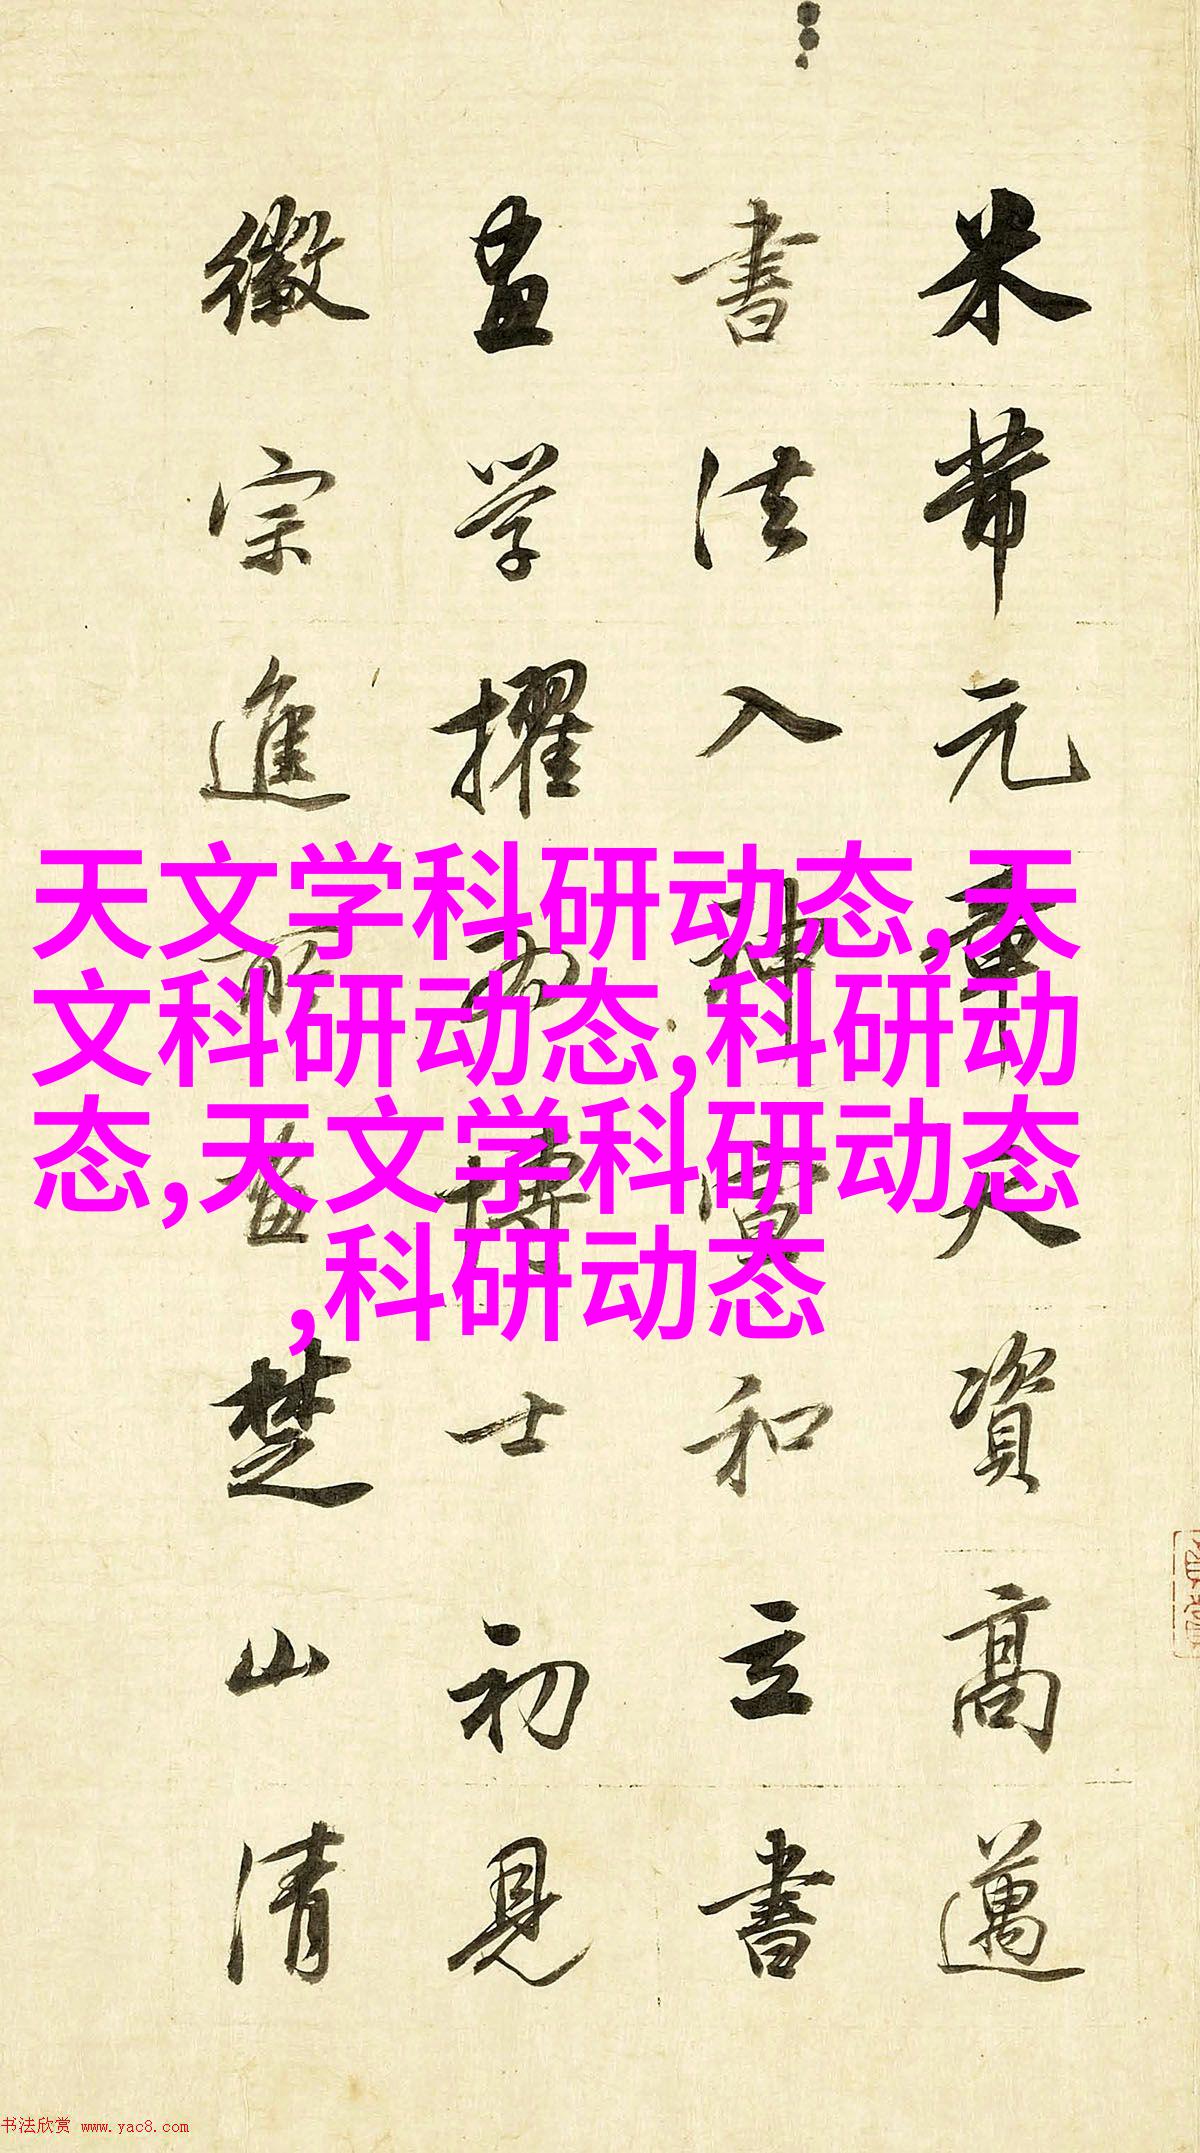 米芾元章天資高邁
書法入神宣和立書
畫学擢為博士初見
徽宗進所畫楚山清
天文学科研动态,天
文科研动态,科研动
态,天文学科研动态
,科研动态
书法欣赏 www.yac8.com